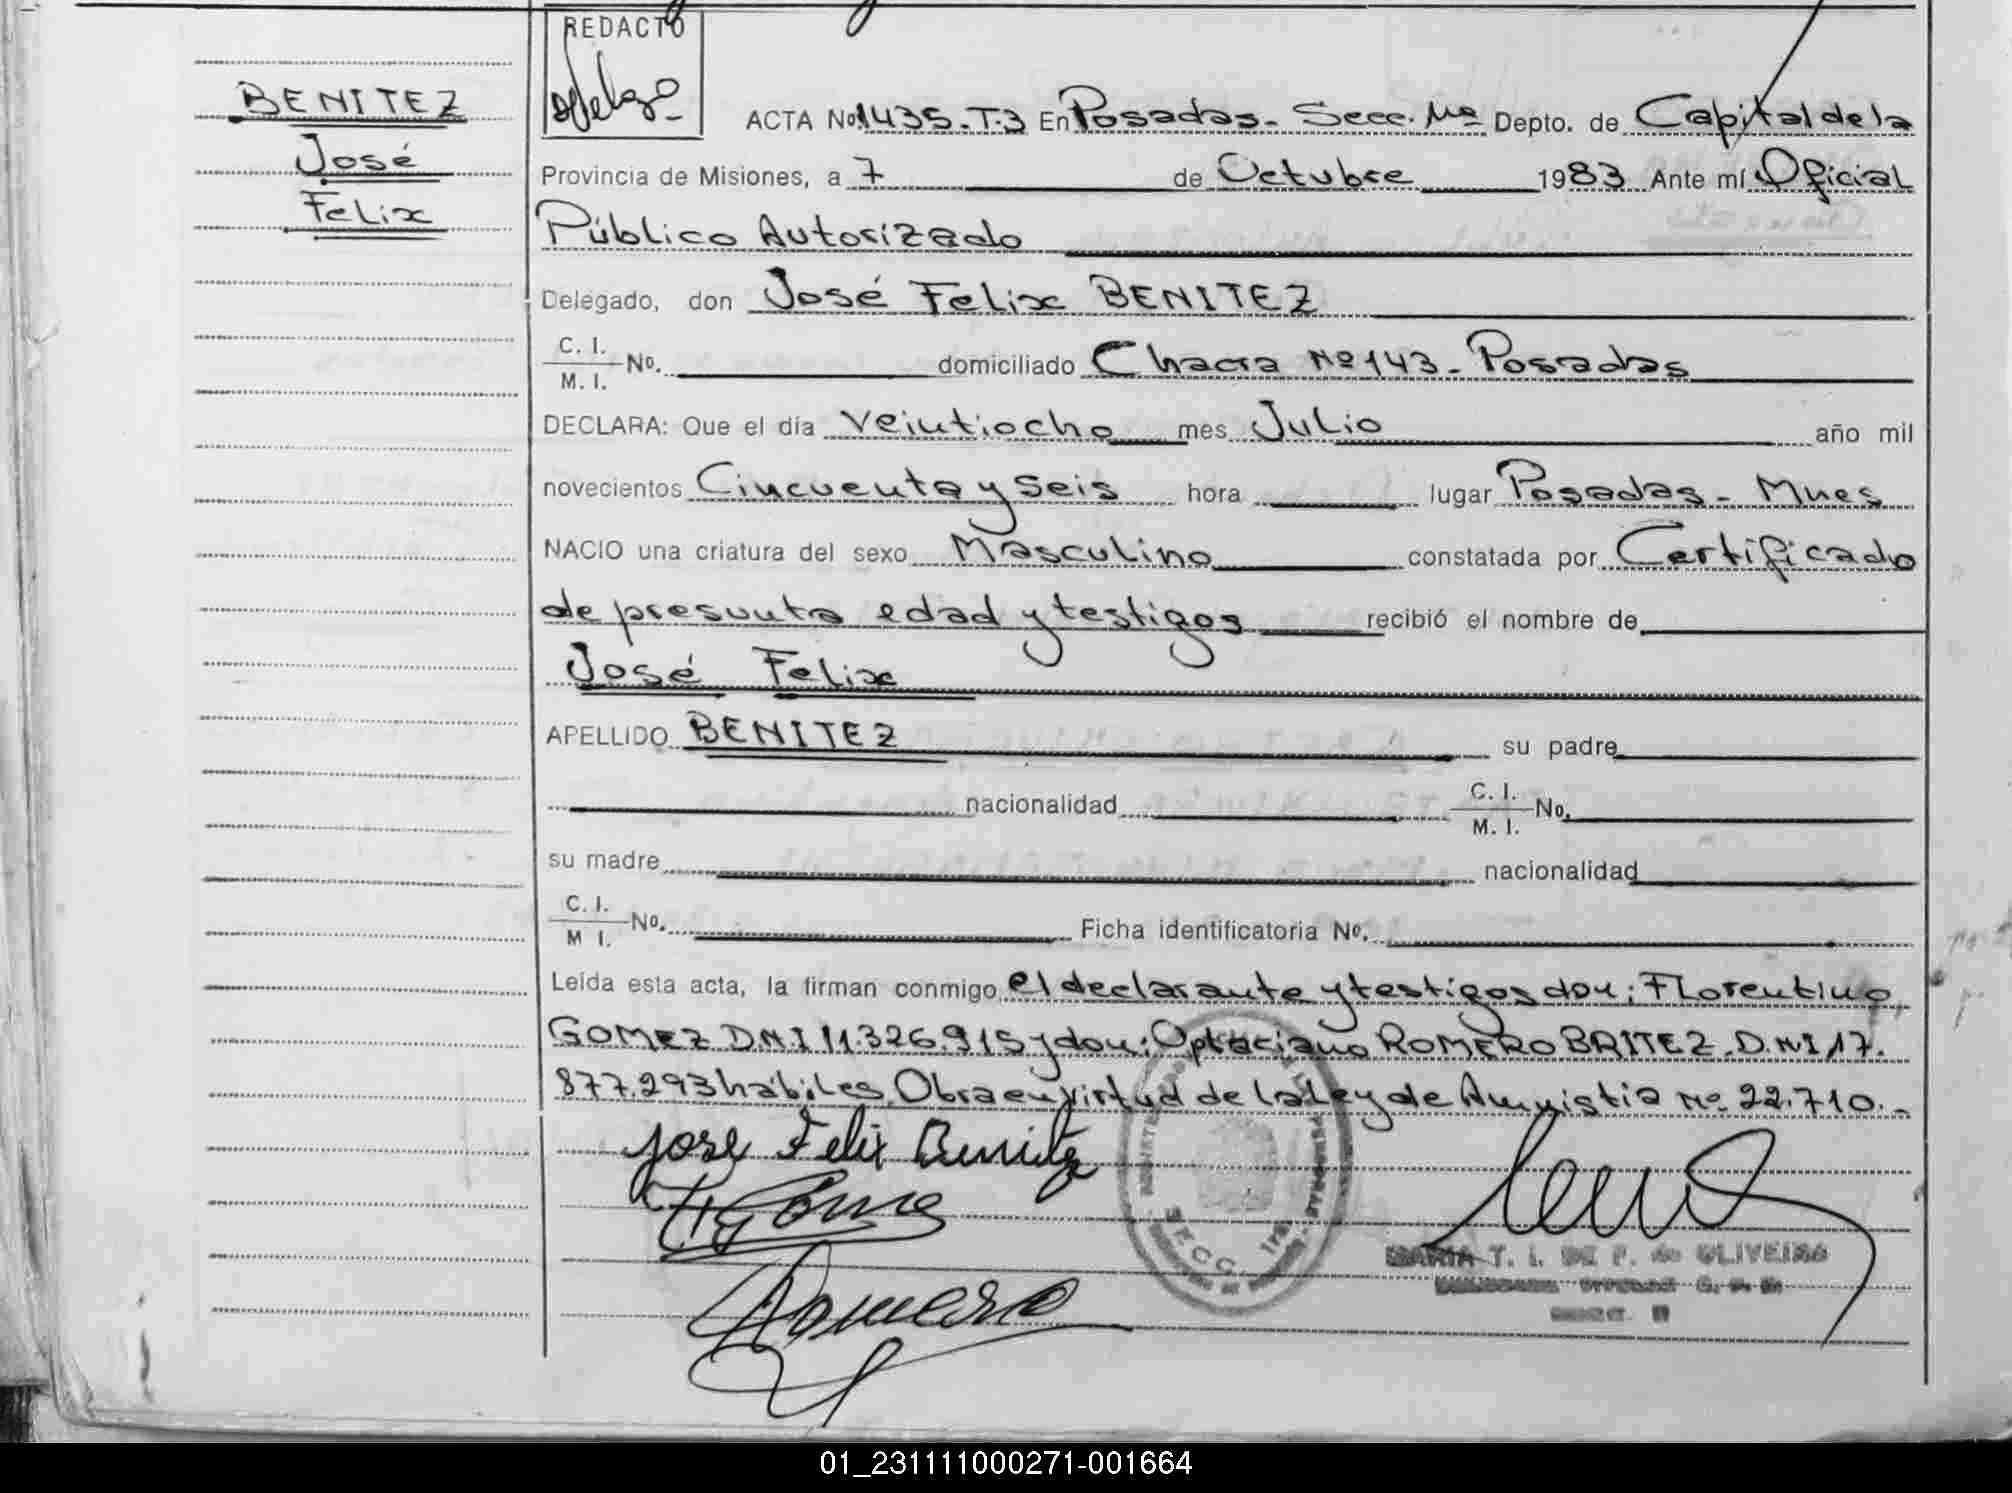 REDACTO
BENITEZ
José
Felix
ACTA No. 1435. T.3 En Posadas. Secc. 11ª Depto. de Capital de la
Provincia de Misiones, a 7 de Octubre 1983 Ante mí Oficial
Público Autorizado
Delegado, don José Felix BENITEZ
C. I.
M. I. No. domiciliado Chacra Nº 143. Posadas
DECLARA: Que el día veintiocho mes Julio año mil
novecientos Cincuenta y seis hora lugar Posadas - Mnes
NACIO una criatura del sexo Masculino constatada por Certificado
de presunta edad y testigos recibió el nombre de
José Felix
APELLIDO BENITEZ su padre
nacionalidad C. I.
M. I. No.
su madre nacionalidad
C. I.
M I. No. Ficha identificatoria No.
Leída esta acta, la firman conmigo el declarante y testigos don: Florentino
GOMEZ D.N.I 11.326.915 y don: Optaciano ROMERO BRITEZ. D.N.I 17.
877.293 hábiles. Obra en virtud de la Ley de Amnistia Nº 22.710.-
Jose Felix Benitez
Romero
SECC.
MARIA T. I. DE P. de OLIVEIRA
01_231111000271-001664